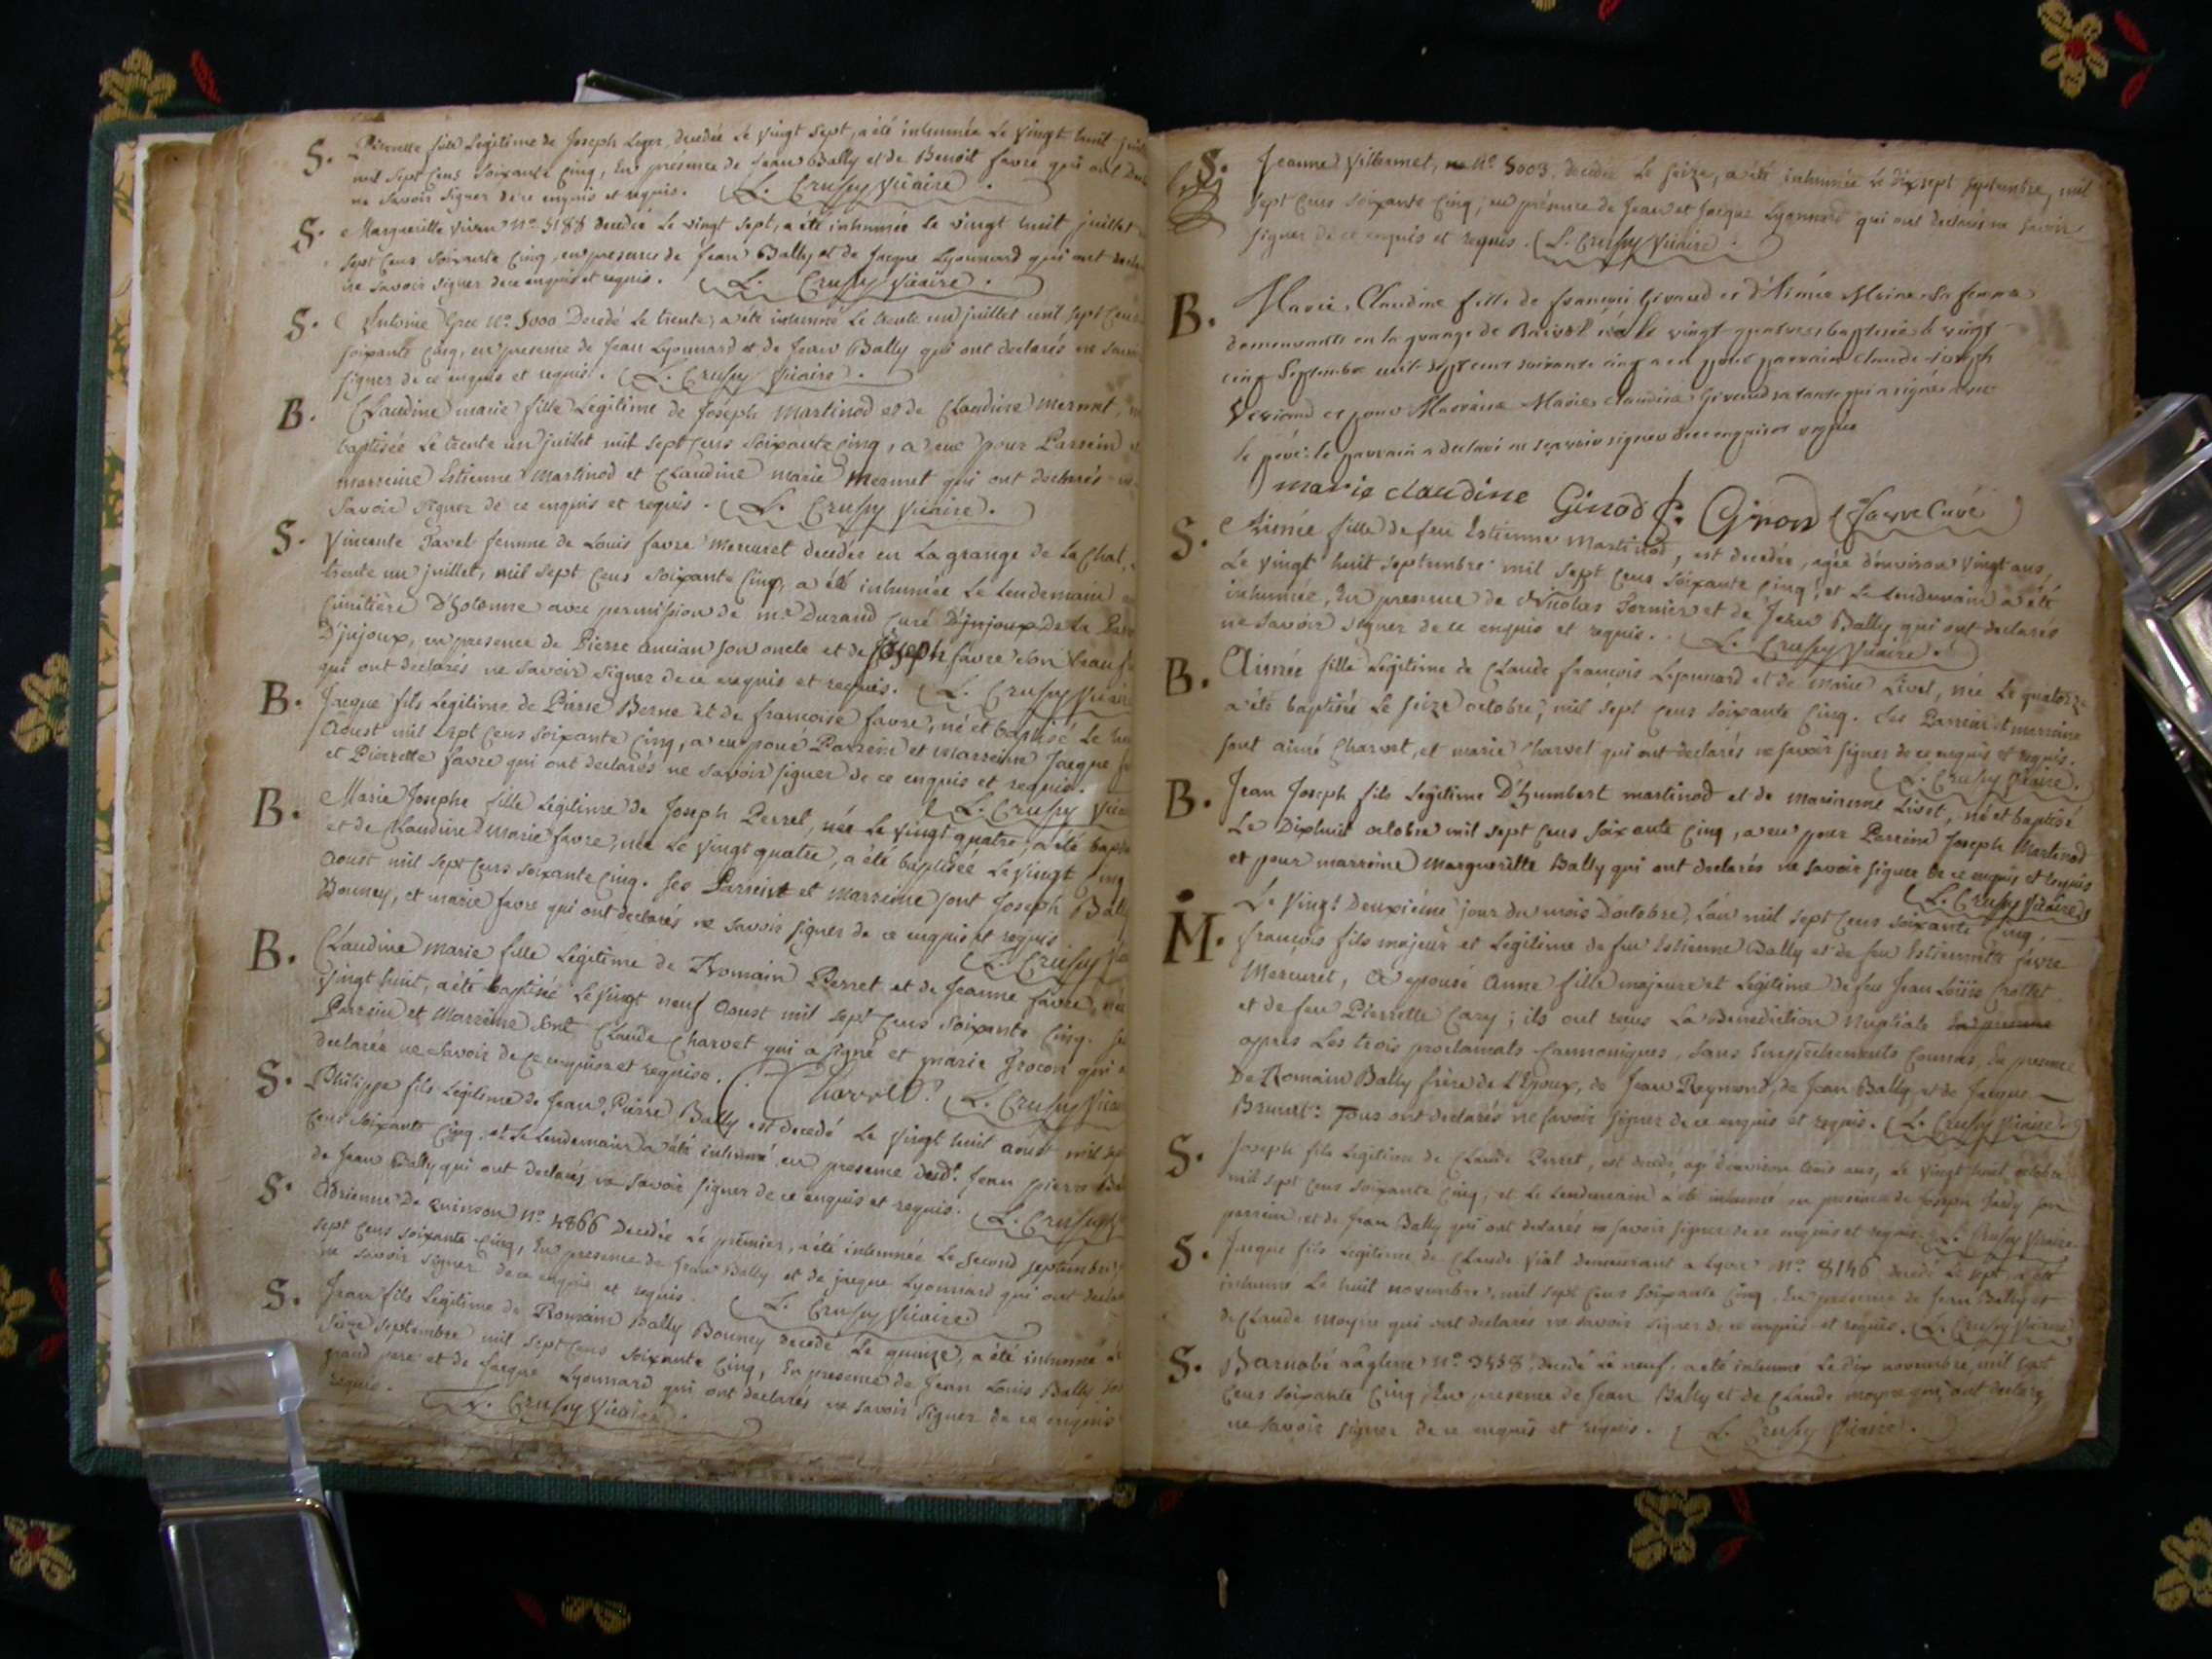 S. Pierrette fille Legitime de Joseph Leger, decedée Le vingt sept, a été inhumée Le vingt huit
mil sept cens soixante cinq, En presence de Jean Bally et de Benoit favre qui ont
ne savoir signer de ce enquis et requis. L. Crussy Vicaire.
S. Margueritte No. 5188 decedée Le vingt sept, a été inhumée Le vingt huit juillet
sept cens soixante cinq, en presence de Jean Bally et de Jacque Lyonnard qui ont
ne savoir signer de ce enquis et requis. L. Crussy Vicaire.
S. Antoine No. 5000 Decedé Le trente, a été inhumé Le trente un juillet mil sept cens
soixante cinq, en presence de Jean Lyonnard et de Jean Bally qui ont declarés ne savoir
signer de ce enquis et requis. L. Crussy Vicaire.
B. Claudine marie fille Legitime de Joseph martinod et de Claudine mermet,
baptisée Le trente un juillet mil sept cens soixante cinq, a eue pour Parrein
marreine Estienne martinod et Claudine marie mermet qui ont declarés ne
savoir signer de ce enquis et requis. L. Crussy Vicaire.
S. Vincente Tavel femme de Louis favre Mercuret decedée en La grange de La Chal,
trente un juillet, mil sept cens soixante cinq, a été inhumée Le Lendemain
cimitière D'hotonne avec permission de mr. Durand curé D'injoux De La
D'injoux, en presence de Pierre ancian son oncle et de Joseph favre son beau
qui ont declarés ne savoir signer de ce enquis et requis. L. Crussy Vicaire
B. Jacque fils Legitime de Pierre Berne et de francoise favre, né et baptisé Le
Aoust mil sept cens soixante cinq, a eu pour Parrein et marreine Jacque
et Pierrette favre qui ont declarés ne savoir signer de ce enquis et requis.
L. Crussy
B. Marie Josephe fille Legitime de Joseph Perret, née Le vingt quatre, a été
et de Claudine Marie favre, née Le vingt quatre, a été baptisée Le vingt cinq
Aoust mil sept cens soixante cinq. Ses Parreint et marreine sont Joseph Bally
Bonney, et marie favre qui ont declarés ne savoir signer de ce enquis et requis
L. Crussy
B. Claudine marie fille Legitime de Romain Perret et de Jeanne favre, née
vingt huit, a été baptisé Le vingt neuf Aoust mil sept cens soixante cinq.
Parrein et Marreine sont Claude Charvet qui a signé et marie qui a
declarée ne savoir de ce enquise et requise. C Charvet L. Crussy
S. Philippe fils Legitime de Jean Pierre Bally est decedé Le vingt huit aoust mil
cens soixante cinq, et Le Lendemain a été inhumé, en presence dudt. Jean pierre
de Jean Bally qui ont declarés ne savoir signer de ce enquis et requis. L. Crussy
S. Adrienne De quinson No. 4866 Decedée Le premier, a été inhumée Le second septembre
sept cens soixante cinq, En presence de Jean Bally et de jacque Lyonnard qui ont
ne savoir signer de ce enquis et requis. L. Crussy Vicaire
S. Jean fils Legitime de Romain Bally Bonney decedé Le quinze, a été inhumé
seize septembre mil sept cens soixante cinq, En presence de Jean Louis Bally son
grand pere et de Jacque Lyonnard qui ont declarés ne savoir signer de ce enquis
requis. L. Crussy Vicaire.
S. Jeanne Villermet, No. 5003, decedée Le seize, a été inhumée Le dixsept septembre, mil
sept cens soixante cinq, en presence de Jean et Jacque Lyonnard qui ont declarés ne savoir
signer de ce enquis et requis. L. Crussy Vicaire.
B. Marie Claudine fille de françois Giraud et d'Aimée sa femme
demeurants en la grange de née le vingt quatre, baptisée le vingt
cinq Septembre mil sept cent soixante cinq a eu pour parrain claude joseph
et pour Marraine Marie claudine Giraud sa tante qui a signé avec
le père: le parrain a declaré ne sçavoir signer de ce enquis et requis
marie claudine Girod f. Giron favre Curé
S. Aimée fille de feu Estienne martinod, est decedée, agée d'environ vingt ans,
Le vingt huit septembre mil sept cens soixante cinq, et Le Lendemain a été
inhumée, En presence de Nicolas Tornier et de Jean Bally qui ont declarés
ne savoir signer de ce enquis et requis. L. Crussy Vicaire.
B. Aimée fille Legitime de Claude françois Lyonnard et de marie Livet, née Le quatorze
a été baptisée Le seize octobre, mil sept cens soixante cinq. Ses Parrein et marreine
sont aimé Charvet, et marie Charvet qui ont declarés ne savoir signer de ce enquis et requis.
L. Crussy Vicaire.
B. Jean Joseph fils Legitime D'humbert martinod et de Livet, né et baptisé
Le Dixhuit octobre mil sept cens soixante cinq, a eu pour Parrein Joseph Martinod
et pour marreine margueritte Bally qui ont declarés ne savoir signer de ce enquis et requis
L. Crussy Vicaire
M. Le vingt Deuxiéme jour du mois D'octobre, L'an mil sept cens soixante cinq.
françois fils majeur et Legitime de feu Estienne Bally et de feu Estiennette favre
Mercuret, a epousé Anne fille majeure et Legitime de feu Jean Loüis Crottet
et de feu Pierrette Cary; ils ont reçus La Benediction Nuptiale
apres Les trois proclamats cannoniques, sans Empechements connus, En presence
De Romain Bally frère de L'Epoux, de Jean Reymond, de Jean Bally et de Jacque
Brunet: Tous ont declarés ne savoir signer de ce enquis et requis. L. Crussy Vicaire.
S. Joseph fils Legitime de Claude Perret, est decedé, agé d'environ trois ans, Le vingt huit octobre
mil sept cens soixante cinq, et Le Lendemain a été inhumé en presence de Joseph son
parrein, et de Jean Bally qui ont declarés ne savoir signer de ce enquis et requis. L. Crussy Vicaire
S. Jacque fils Legitime de Claude Vial demeurant a Lyon No. 8146 decedé Le sept, a été
inhumé Le huit novembre, mil sept cens soixante cinq, En presence de Jean Bally et
de Claude moyne qui ont declarés ne savoir signer de ce enquis et requis. L. Crussy Vicaire
S. Barnabé No. 3458, decedé Le neuf, a été inhumé Le dix novembre, mil sept
cens soixante cinq, En presence de Jean Bally et de Claude moyne qui ont declarés
ne savoir signer de ce enquis et requis. L. Crussy Vicaire.